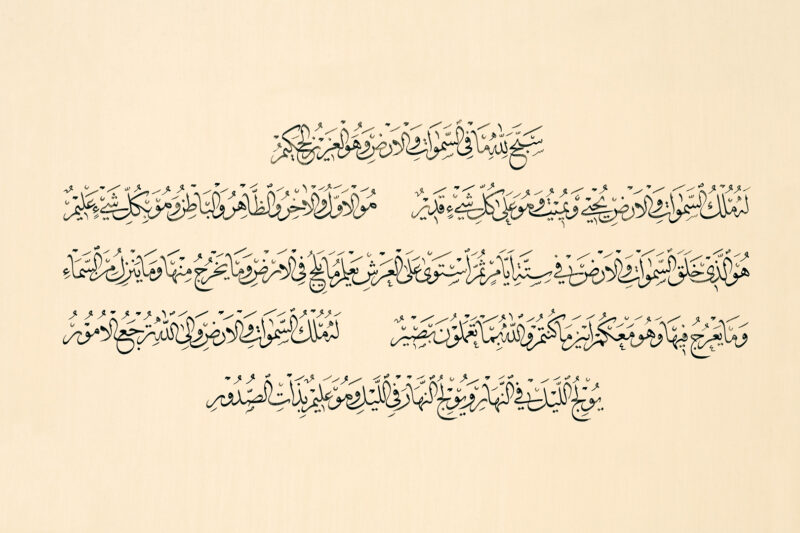 سَبَّحَ لِلّٰهِ مَا فِى السَّمٰوَاتِ وَالْاَرْضِ وَهُوَ الْعَزِيزُ الْحَكِيمُ
لَهُ مُلْكُ السَّمٰوَاتِ وَالْاَرْضِ يُحْيٖي وَيُمٖيتُ وَهُوَ عَلٰى كُلِّ شَيْءٍ قَدٖيرٌ هُوَ الْاَوَّلُ وَالْاٰخِرُ وَالظَّاهِرُ وَالْبَاطِنُ وَهُوَ بِكُلِّ شَيْءٍ عَلٖيمٌ
هُوَ الَّذٖى خَلَقَ السَّمٰوَاتِ وَالْاَرْضَ فٖى سِتَّةِ اَيَّامٍ ثُمَّ اسْتَوٰى عَلَى الْعَرْشِ يَعْلَمُ مَا يَلِجُ فِى الْاَرْضِ وَمَا يَخْرُجُ مِنْهَا وَمَا يَنْزِلُ مِنَ السَّمَاءِ
وَمَا يَعْرُجُ فٖيهَا وَهُوَ مَعَكُمْ اَيْنَ مَا كُنْتُمْ وَاللّٰهُ بِمَا تَعْمَلُونَ بَصٖيرٌ لَهُ مُلْكُ السَّمٰوَاتِ وَالْاَرْضِ وَاِلَى اللّٰهِ تُرْجَعُ الْاُمُورُ
يُولِجُ الَّيْلَ فِى النَّهَارِ وَيُولِجُ النَّهَارَ فِى الَّيْلِ وَهُوَ عَلٖيمٌ بِذَاتِ الصُّدُورِ